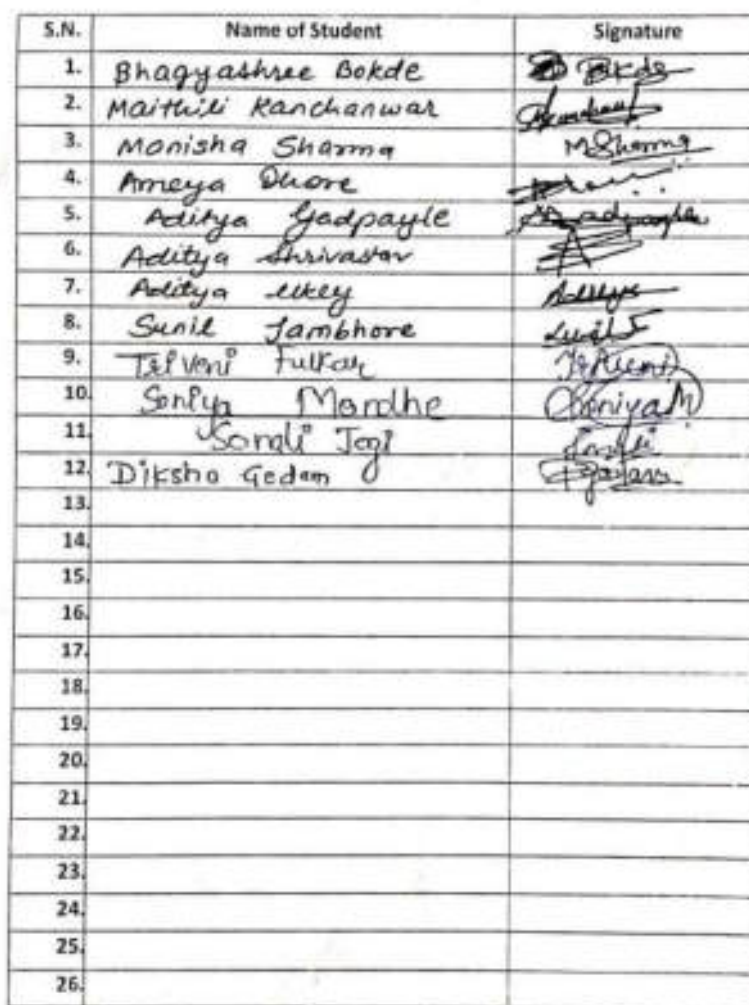 S.N. Name of Student Signature
1. Bhagyashree Bokde Bokde
2. Maithili Kanchanwar
3. Monisha Sharma MSharma
4. Ameya Dhore
5. Aditya Gadpayle Gadpayle
6. Aditya Shrivastav A
7. Aditya Uikey Aditya
8. Sunil Jambhore Sunil
9. Triveni Fulkar Triveni
10. Soniya Mondhe Soniya M
11. Sonali Jogi Sonali
12. Diksha Gedam
13.
14.
15.
16.
17.
18.
19.
20.
21.
22.
23.
24.
25.
26.